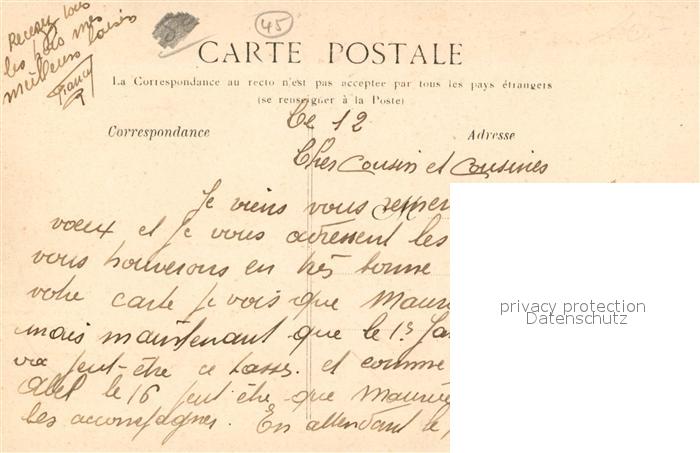 Recevez tous
les trois mes
meilleurs baisés
France
45
CARTE POSTALE
La Correspondance au recto n'est pas acceptée par tous les pays étrangers
(se renseigner à la Poste)
Correspondance
Adresse
Ce 12
Cher Cousin et Cousines
Je viens vous remer
vœux et Je vous adressent les
vous trouverons en très bonne
votre carte Je vois que Mauri
mais maintenant que le 1er Jan
va peut-être ce tasser. et comme
Abel le 16 peut être que Mauri
les accompagner. En attendant le
privacy protection
Datenschutz